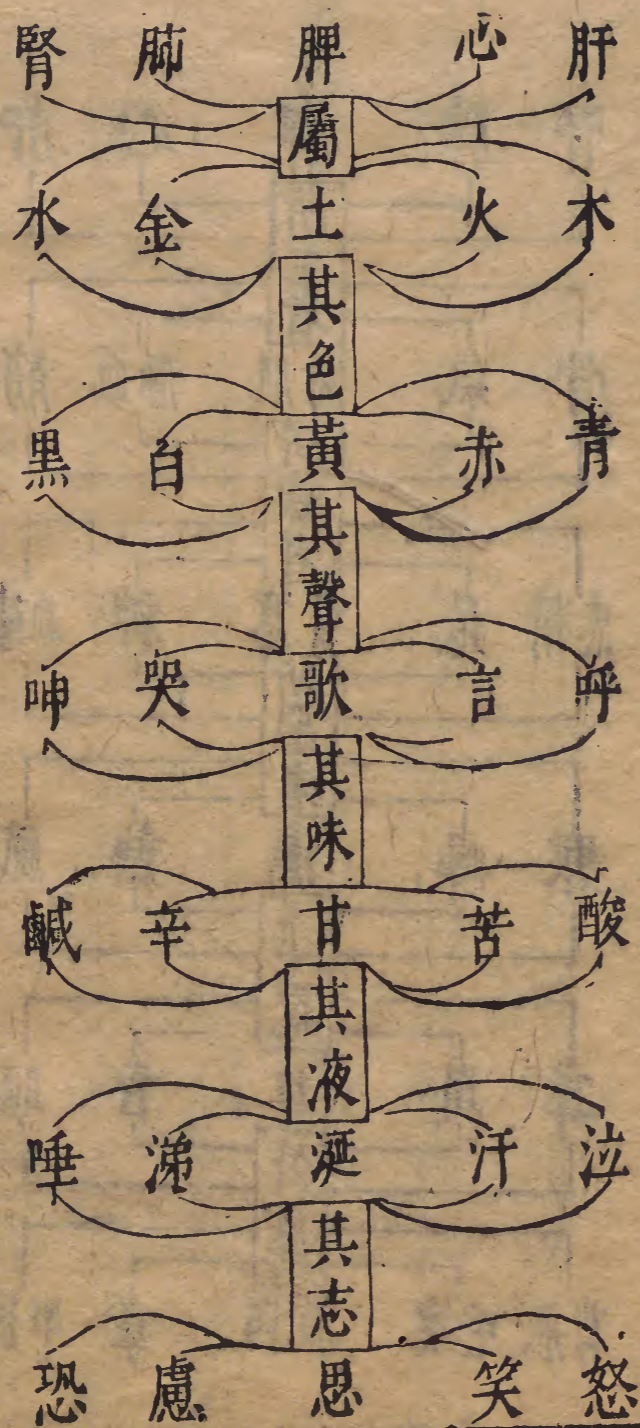 肝心脾肺腎
屬
木火土金水
其色
青赤黃白黒
其聲
呼言歌哭呻
其味
酸苦甘辛鹹
其液
泣汗涎涕唾
其志
怒笑思慮恐